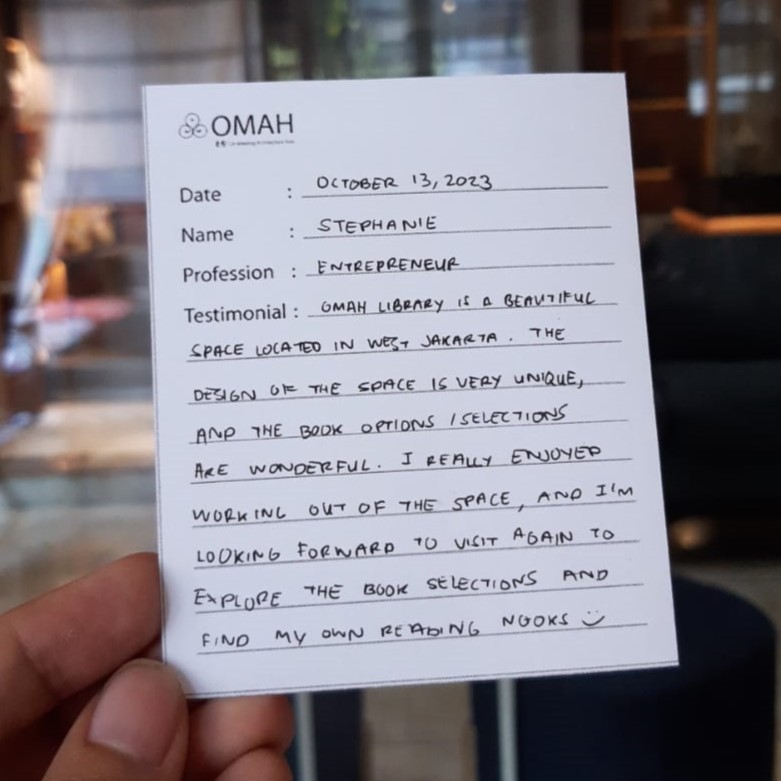 OMAH
Date : OCTOBER 13, 2023
Name : STEPHANIE
Profession : ENTREPRENEUR
Testimonial : OMAH LIBRARY IS A BEAUTIFUL
SPACE LOCATED IN WEST JAKARTA. THE
DESIGN OF THE SPACE IS VERY UNIQUE,
AND THE BOOK OPTIONS / SELECTIONS
ARE WONDERFUL. I REALLY ENJOYED
WORKING OUT OF THE SPACE, AND I'M
LOOKING FORWARD TO VISIT AGAIN TO
EXPLORE THE BOOK SELECTIONS AND
FIND MY OWN READING NOOKS